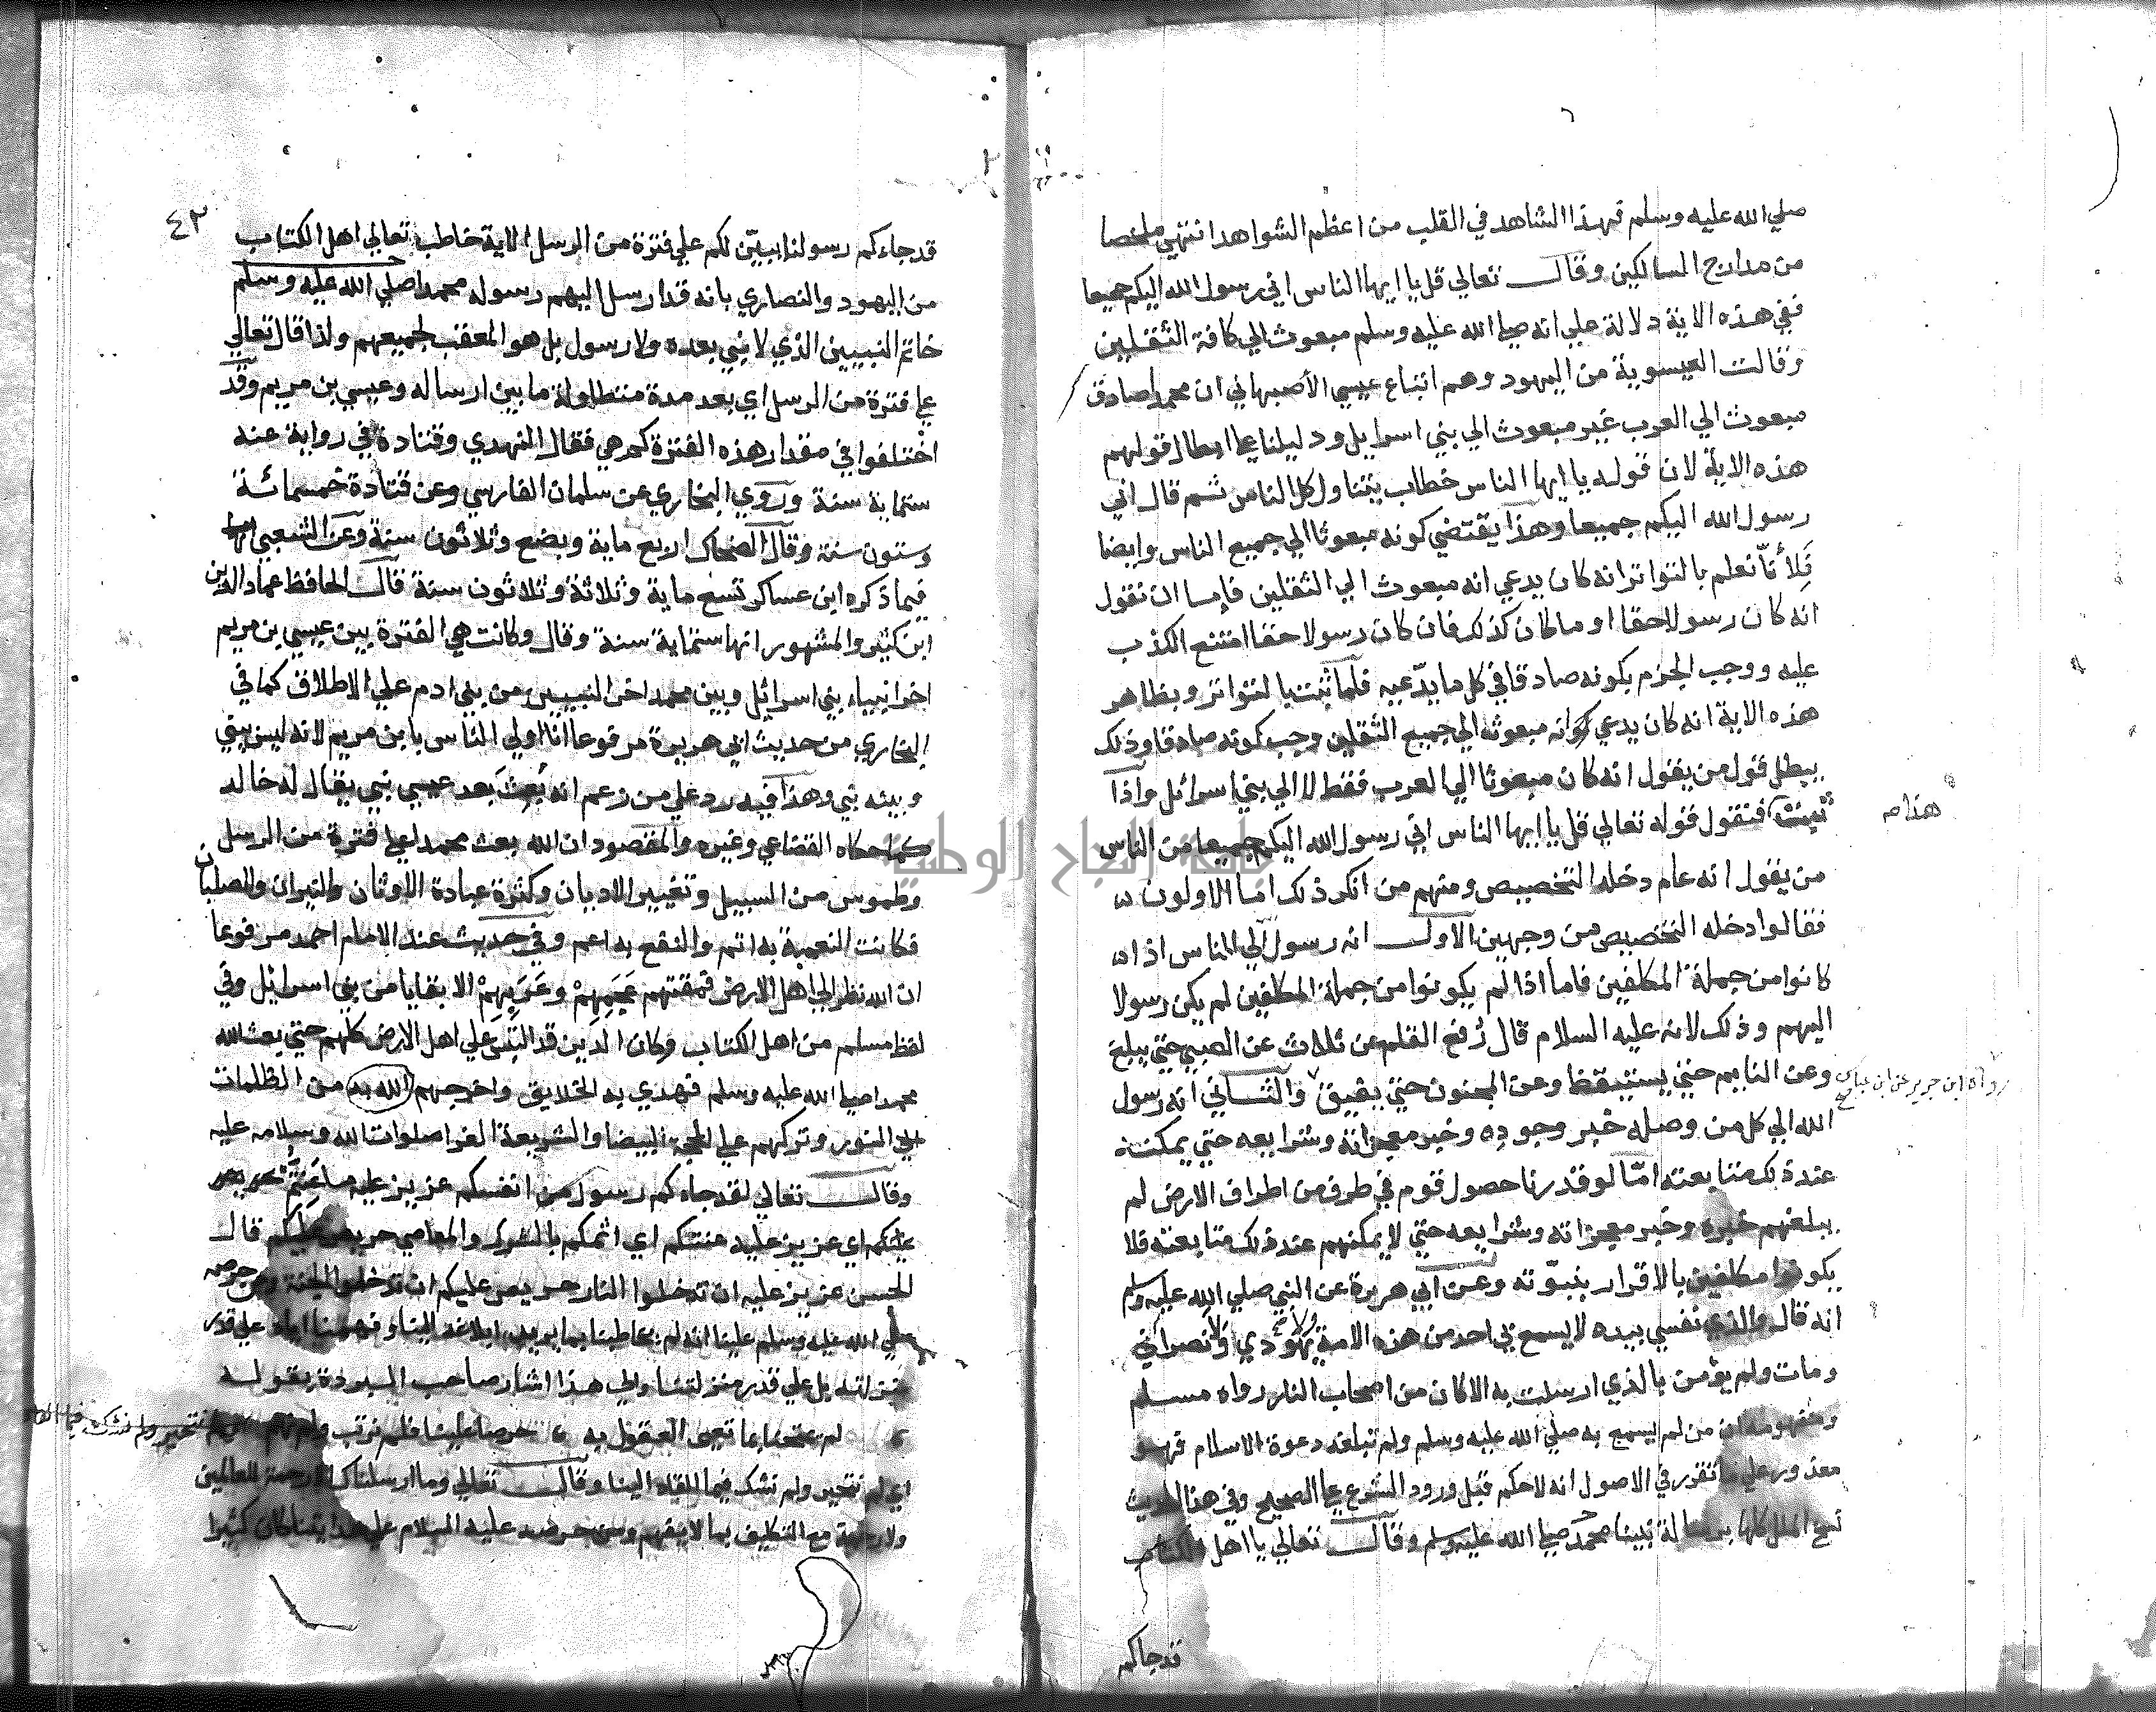 صلي الله عليه وسلم فهذا الشاهد في القلب من اعظم الشواهد انتهي ملخصا
من مدارج السالكين وقال تعالي قل يا ايها الناس اني رسول الله اليكم جميعا
ففي هذه الاية دلالة علي انه صلي الله عليه وسلم مبعوث الي كافة الثقلين
وقالت العيسوية من اليهود وهم اتباع عيسي الأصبهاني ان محمدا صادق
مبعوث الي العرب غير مبعوث الي بني اسرايل ودليلنا علي ابطال قولهم
هذه الاية لان قوله يا ايها الناس خطاب يتناول كل الناس ثم قال اني
رسول الله اليكم جميعا وهذا يقتضي كونه مبعوثا الي جميع الناس وايضا
فلأنّا نعلم بالتواتر انه كان يدعي انه مبعوث الي الثقلين فإما ان نقول
انه كان رسولا حقا او ما كان كذلك فان كان رسولا حقا امتنع الكذب
عليه ووجب الجزم بكونه صادقا في كل ما يدّعيه فلما ثبت بالتواتر وبظاهر
هذه الاية انه كان يدعي كونه مبعوثا الي جميع الثقلين وجب كونه صادقا وذلك
يبطل قول من يقول انه كان مبعوثا الي العرب فقط لا الي بني اسرائل واذا
ثبت فنقول قوله تعالي قل يا ايها الناس اني رسول الله اليكم جميعا من الناس
هذا صح
من يقول انه عام دخله التخصيص ومنهم من انكر ذلك اما الاولون
فقالوا دخله التخصيص من وجهين الأول انه رسول الي الناس اذا
كانوا من جملة المكلفين فاما اذا لم يكونوا من جملة المكلفين لم يكن رسولا
اليهم وذلك لانه عليه السلام قال رُفع القلم عن ثلاث عن الصبي حتي يبلغ
وعن النايم حتي يستيقظ وعن المجنون حتي يفيق والثاني انه رسول
رواه ابن جرير عن ابن عباس صح
الله الي كل من وصله خبر وجوده وخبر معجزاته وشرايعه حتي يمكنه
عند ذلك متابعته امّا لو قدرنا حصول قوم في طرف من اطراف الارض لم
يبلغهم خبره وخبر معجزاته وشرايعه حتي لا يمكنهم عند ذلك متابعته فلا
يكونوا مكلفين بالاقرار بنبوّته وعن ابي هريرة عن النبي صلي الله عليه وسلم
انه قال والذي نفسي بيده لا يسمع بي احد من هذه الامة يهودي ولا نصراني
ومات ولم يؤمن بالذي ارسلت به الا كان من اصحاب النار رواه مسلم
ومفهومه ان من لم يسمع به صلي الله عليه وسلم ولم تبلغه دعوة الاسلام فهو
معذور علي ما تقرر في الاصول انه لا حكم قبل ورود الشرع علي الصحيح وفي هذا الحديث
نسخ الملل كلها برسالة نبينا محمد صلي الله عليه وسلم وقال تعالي يا اهل الكتاب
قد جاكم
٤٣
قد جاءكم رسولنا يبيّن لكم علي فترة من الرسل الاية خاطب تعالي اهل الكتاب
من اليهود والنصاري بانه قد ارسل اليهم رسوله محمدا صلي الله عليه وسلم
خاتم النبيين الذي لا نبي بعده ولا رسول بل هو المعقب لجميعهم ولذا قال تعالي
علي فترة من الرسل اي بعد مدة متطاولة ما بين ارساله وعيسي بن مريم وقد
اختلفوا في مقدار هذه الفترة كم هي فقال النهدي وقتادة في رواية عنه
ستماية سنة وروي البخاري عن سلمان الفارسي وعن قتادة خمسمائة
وستون سنة وقال الضحاك اربع ماية وبضع وثلاثون سنة وعن الشعبي
فيما ذكره ابن عساكر تسع ماية وثلاثة وثلاثون سنة قال الحافظ عماد الدين
ابن كثير والمشهور انها ستماية سنة وقال وكانت هي الفترة بين عيسي بن مريم
اخر انبياء بني اسرائل وبين محمد اخر النبيين من بني ادم علي الاطلاق كما في
البخاري من حديث ابي هريرة مرفوعا انا اولي الناس بابن مريم لانه ليس بيني
وبينه نبي وهذا فيه رد علي من زعم انه بُعث بعد عيسي نبي يقال له خالد
كما حكاه القضاعي وغيره والمقصود ان الله بعث محمدا علي فترة من الرسل
وطموس من السبيل وتغيير الاديان وكثرة عبادة الاوثان والنيران والصلبان
فكانت النعمة به اتم والنفع به اعم وفي حديث عند الامام احمد مرفوعا
ان الله نظر الي اهل الارض فمقتهم عَجَمِهِمْ وعَرَبِهِمْ الا بقايا من بني اسرائل وفي
لفظ مسلم من اهل الكتاب وكان الدين قد التبس علي اهل الارض كلهم حتي بعث الله
محمدا صلي الله عليه وسلم فهدي به الخلايق واخرجهم الله به من الظلمات
الي النور وتركهم علي المحجة البيضا والشريعة الغرا صلوات الله وسلامه عليه
وقال تعالي لقد جاءكم رسول من انفسكم عزيز عليه ما عَنِتُّم حريص
عليكم اي عزيز عليه عنتكم اي اثمكم بالشرك والمعاصي حريص عليكم قال
الحسن عزيز عليه ان تدخلوا النار حريص عليكم ان تدخلوا الجنة ومن حرصه
صلي الله عليه وسلم علينا انه لم يخاطبنا بما يريد ابلاغه الينا وفهمنا اياه علي قدر
منزلته بل علي قدر منزلتنا والي هذا اشار صاحب البردة بقوله
لم يمتحنا بما تعيى العقول به حرصا علينا فلم نرتب ولم نهم
نتحير ولم نشك فيما
اي لم نتحير ولم نشك فيما القاه الينا وقال تعالي وما ارسلناك الا رحمة للعالمين
ولا رحمة مع التكليف بما لا يفهم ومن حرصه عليه السلام علي هدايتنا كان كثيرا
جامعة النجاح الوطنية